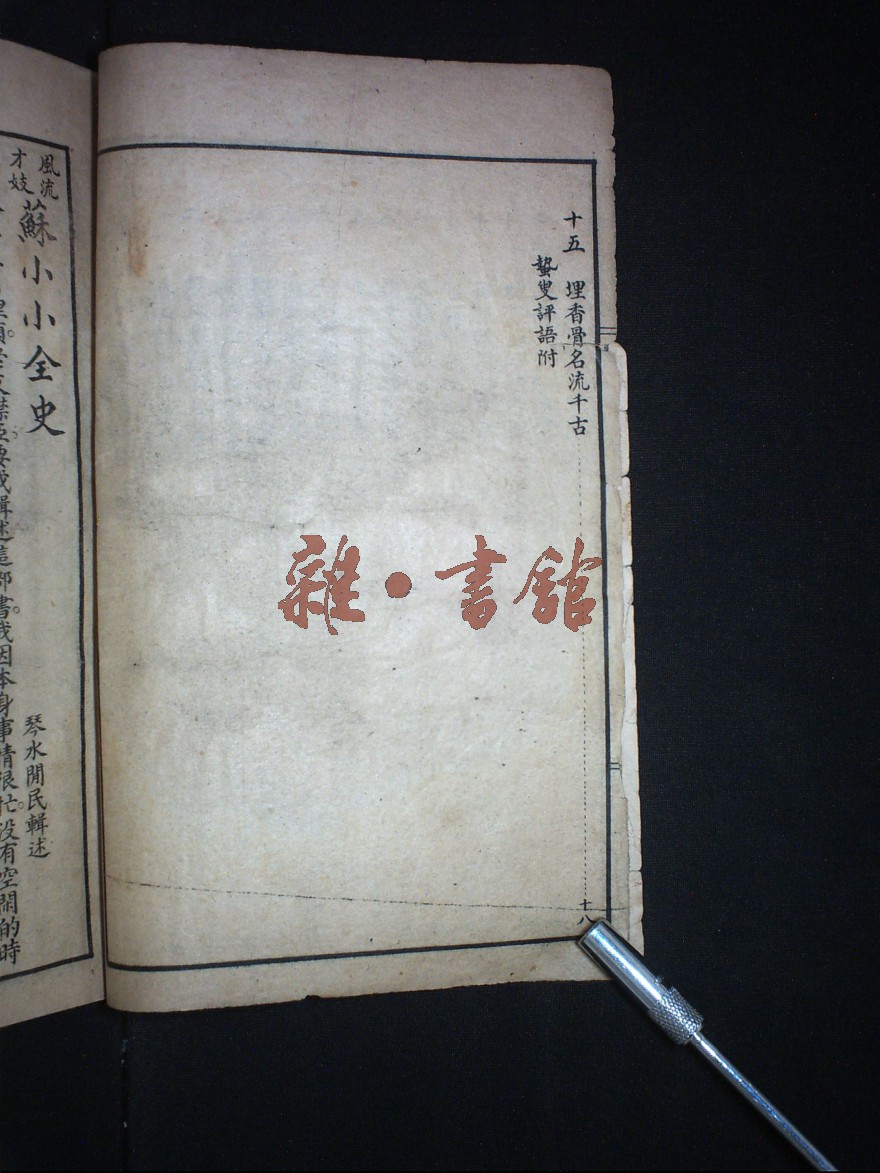 十五 埋香骨名流千古 十八
蟄叟評語附
雜·書館
風流才妓 蘇小小全史
琴水閒民輯述
書。我因本身事情很忙。沒有空閑的時